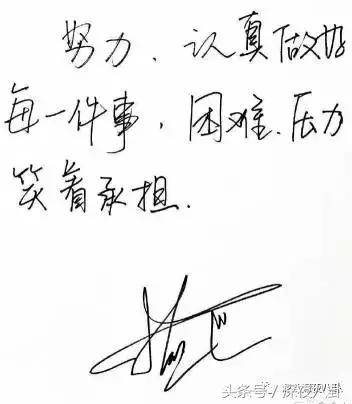 努力、认真做好
每一件事，困难、压力
笑着承担.